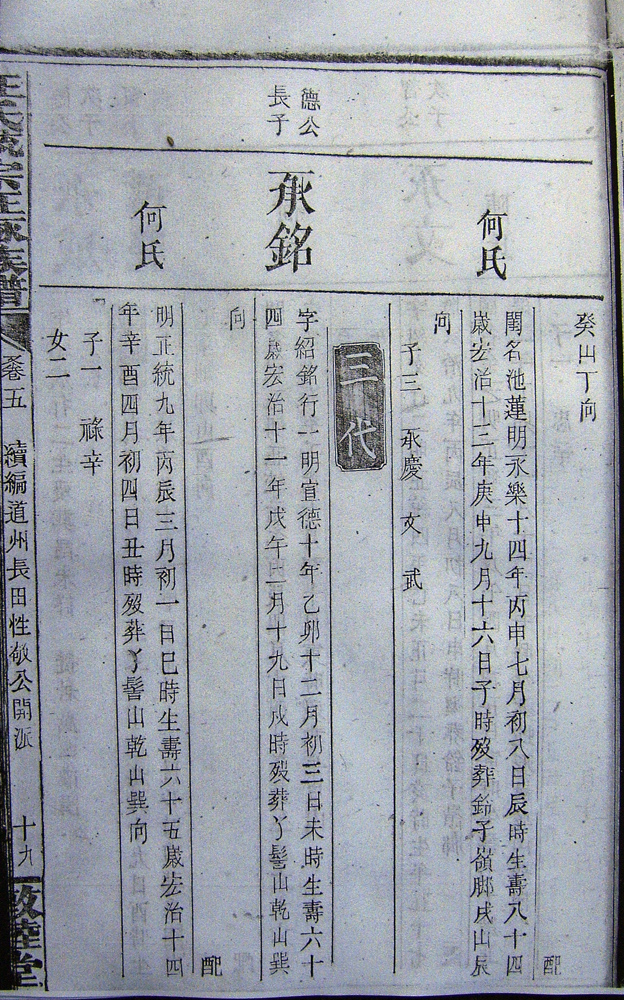 癸山丁向
配
何氏
閨名池蓮明永樂十四年丙申七月初八日辰時生壽八十四
歲宏治十三年庚申九月十六日子時歿葬鈴子嶺脚戌山辰
向
子三 承慶 文 武
三代
德公
長子
承銘
字紹銘行一明宣德十年乙卯十二月初三日未時生壽六十
四歲宏治十一年戊午二月十九日戌時歿葬丫髻山乾山巽
向
配
何氏
明正統九年丙辰三月初一日巳時生壽六十五歲宏治十四
年辛酉四月初四日丑時歿葬丫髻山乾山巽向
子一 祿辛
女二
王氏流宗正派族譜
卷五
續編道州長田性敬公開派
十九
敦睦堂